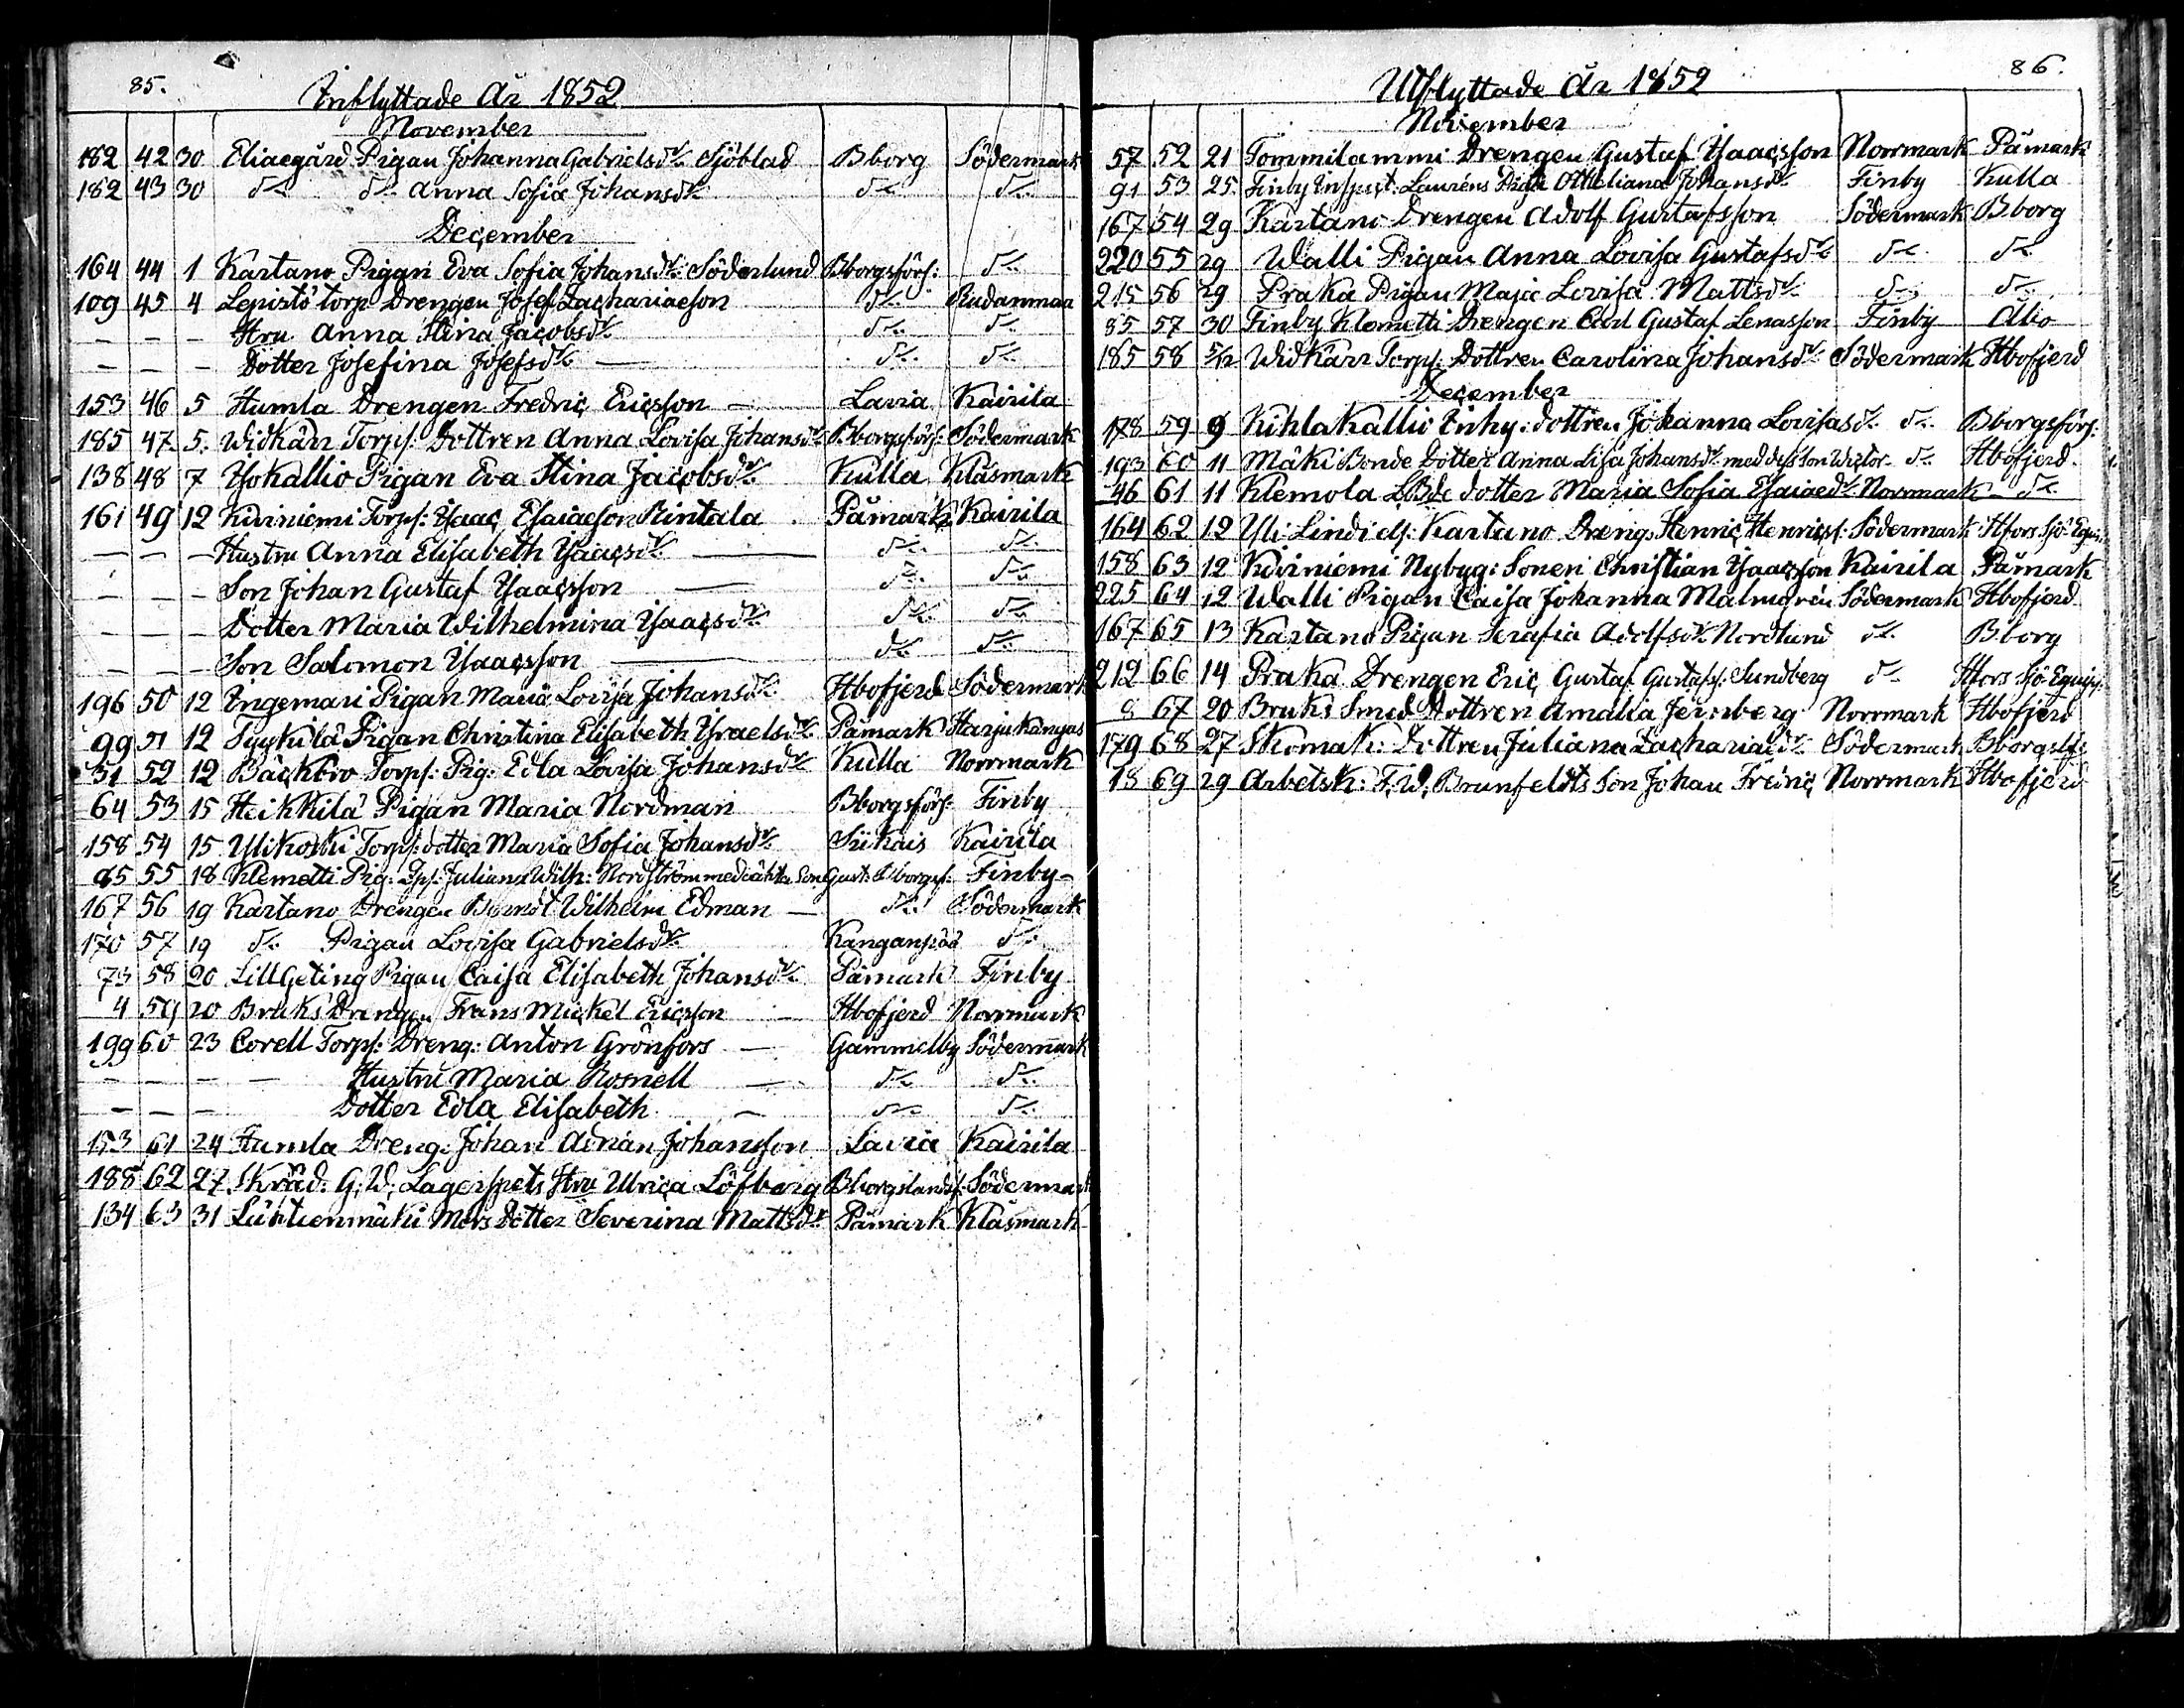 85.
Inflyttade År 1852
November
182 42 30 Eliaegård Pigan Johanna Gabrielsdr Sjöblad Bborg Södermark
182 43 30 do do Anna Sofia Johansdr do do
December
164 44 1 Kartano Pigan Eva Sofia Johansdr Söderlund Bborgsförs: do
109 45 4 Lepistö torp Drengen Josef Zachariaeson do Rudanmaa
— — — Hru Anna Stina Jacobsdr do do
— — — Dotter Josefina Josefsdr — do do
153 46 5 Humla Drengen Fredric Ericsson — Lavia Kairila
185 47 5. Widkärr Torps: Dottren Anna Lovisa Johansdr Bborgsförs: Södermark
138 48 7 Ysokallio Pigan Eva Stina Jacobsdr Kulla Klåsmark
161 49 12 Kiviniemi Torps: Ysaac Esaiaeson Rintala Påmark Kairila
— — — Hustru Anna Elisabeth Ysaacsdr — do do
— — — Son Johan Gustaf Ysaacsson — do do
— — — Dotter Maria Wilhelmina Ysaacsdr do do
— — — Son Salomon Ysaacsson — do do
196 50 12 Ingemari Pigan Maria Lovisa Johansdr Hbofjerd Södermark
99 51 12 Tyykilä Pigan Christina Elisabeth Ysraelsdr Påmark Harjukangas
31 52 12 Bäckbro Torps: Pig: Edla Lovisa Johansdr Kulla Norrmark
64 53 15 Heikkilä Pigan Maria Nordman Bborgsförs: Finby
158 54 15 Ylikoski Torps: dotter Maria Sofia Johansdr Siikais Kairila
85 55 18 Klemetti Pig: Juliana Wilh: Nordström med oäkta Son Gust: Bborgsf: Finby
167 56 19 Kartano Drengen Berndt Wilhelm Edman — do Södermark
170 57 19 do Pigan Lovisa Gabrielsdr Kanganpää do
73 58 20 LillGeting Pigan Caisa Elisabeth Johansdr Påmark Finby
4 59 20 Bruks Drengen Frans Mickel Ericsson — Hbofjerd Norrmark
199 60 23 Corell Torps: Dreng: Anton Grönfors — Gammelby Södermark
— — — — Hustru Maria Rosnell — do do
— — — Dotter Edla Elisabeth — do do
153 61 24 Humla Dreng: Johan Adrian Johansson Lavia Kairila
188 62 27 Skräd: G: W: Lagerspets Hru Ulrica Löfberg Bborgslandsf: Södermark
134 63 31 Lähtienmäki Mors Dotter Severina Mattsdr Påmark Klåsmark
86.
Utflyttade År 1852
November
57 52 21 Tommilammi Drengen Gustaf Ysaacsson Norrmark Påmark
91 53 25 Finby Inspect: Lauréns Piga Ottiliana Johansdr Finby Kulla
167 54 29 Kartano Drengen Adolf Gustafsson Södermark Bborg
220 55 29 Walli Pigan Anna Lovisa Gustafsdr do do
215 56 29 Praka Pigan Maja Lovisa Mattsdr do do
85 57 30 Finby Klemetti Drengen Carl Gustaf Lenasson Finby Åbo
185 58 5/12 Widkärr Torps: Dottren Carolina Johansdr Södermark Hbofjerd
December
178 59 9 Kihlakallio Enky: dottren Johanna Lovisasdr do Bborgsförs:
193 60 11 Mäki Bonde Dotter Anna Lisa Johansdr med dess Son Wictor do Hbofjerd
46 61 11 Klemola LBde dotter Maria Sofia Esaiaedr Norrmark do
164 62 12 Kartano Dreng: Henric Henricss: Södermark Hfors Sjö-Equip:
158 63 12 Kiviniemi Nybyg: Sonen Christian Ysaacsson Kairila Påmark
225 64 12 Walli Pigan Caisa Johanna Malmgrén Södermark Hbofjerd
167 65 13 Kartano Pigan Serafia Adolfsdr Nordlund do Bborg
212 66 14 Praka Drengen Eric Gustaf Gustafss: Sundberg do Hfors Sjö-Equip:
8 67 20 Bruks Smed Dottren Amalia Jernberg Norrmark Hbofjerd
179 68 27 Skomak: Dottren Juliana Zachariaedr Södermark Bborgslfs
18 69 29 Arbetsk: F. W. Brunfeldts Son Johan Fredric Norrmark Hbofjerd